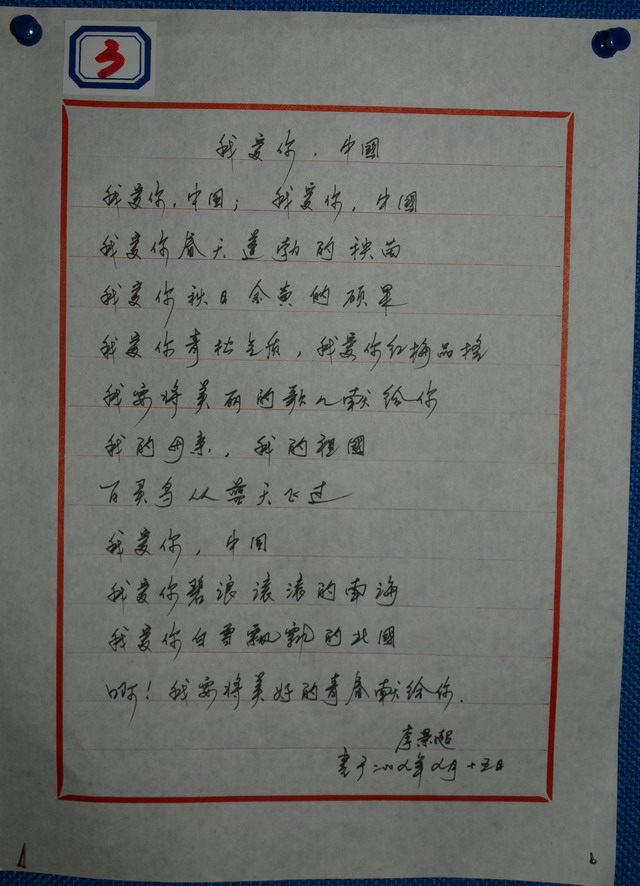 3
我爱你，中國
我爱你，中国；我爱你，中國
我爱你春天蓬勃的秧苗
我爱你秋日金黄的硕果
我爱你青松气质，我爱你红梅品格
我要将美丽的歌儿献给你
我的母亲，我的祖國
百灵鸟从蓝天飞过
我爱你，中国
我爱你碧浪滚滚的南海
我爱你白雪飘飘的北國
啊！我要将美好的青春献给你.
李景
书于二00 年 月十五日